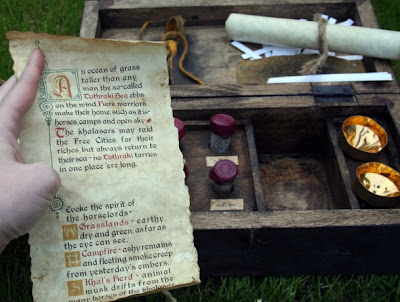 An ocean of grass
taller than any
man the so-called
Dothraki Sea ebbs
on the wind. Fierce warriors
make their home such as it is -
horses, camps and open sky
The khalasars may raid
the Free Cities for their
riches, but always return to
their sea - no Dothraki tarries
in one place 'ere long.
Evoke the spirit of
the horselords -
Grasslands - earthy,
dry and green, as far as
the eye can see.
Campfire - ashy remains
and fleeting smoke creep
from yesterday's embers.
Khal's Herd - animal
musk drifts from the
many horses of the khalasar